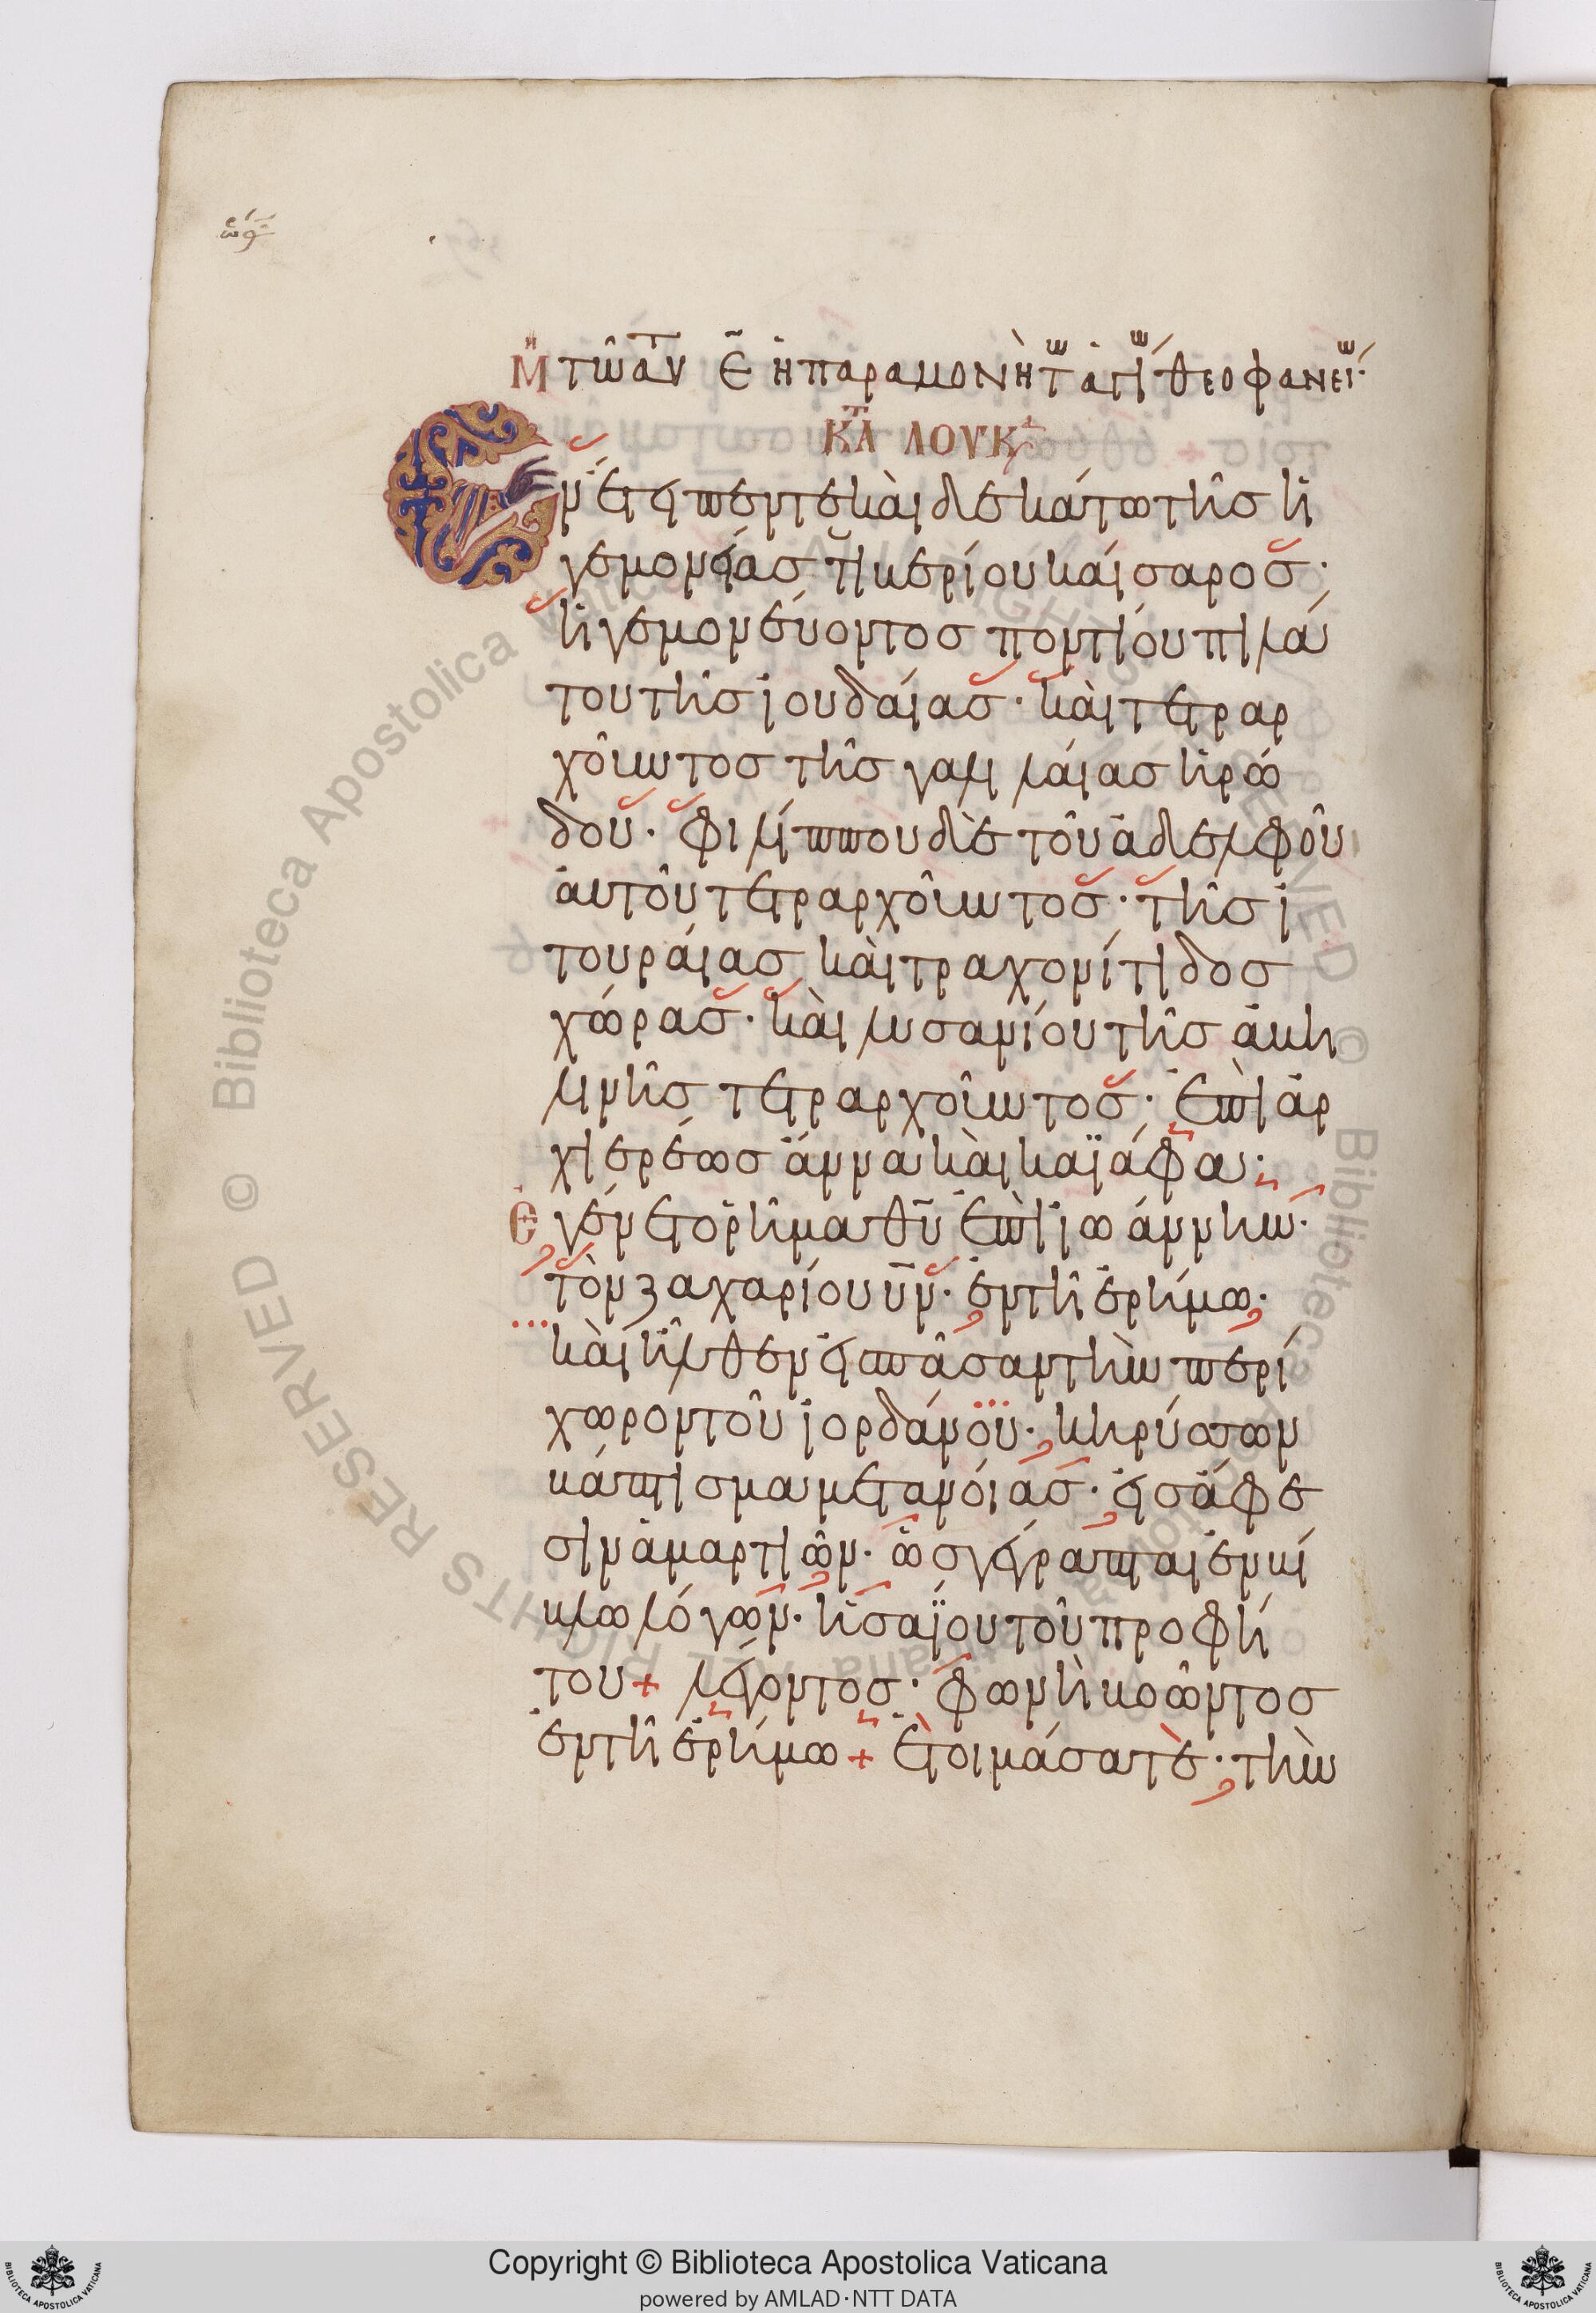 Μη τῶ αὐτ Ε ἡ παραμονὴ τῶ ἁγίω θεοφανείω·
Κατα Λουκ
Ἐν ἔτει πεντεκαιδεκάτω τῆς ἡ
γεμονείας τιβερίου καίσαρος·
ἡγεμονεύοντος ποντίου πιλά
του τῆς ἰουδαίας· καὶ τετραρ
χοῦντος τῆς γαλιλαίας ἡρώ
δου· φιλίππου δὲ τοῦ ἀδελφοῦ
αὐτοῦ τετραρχοῦντος· τῆς ἰ
τουραίας καὶ τραχονίτιδος
χώρας· καὶ λυσανίου τῆς ἀβη
λινῆς τετραρχοῦντος· ἐπὶ ἀρ
χιερέως ἄννα καὶ καϊάφα·
ἐγένετο ῥῆμα θυ ἐπὶ ἰωάννην·
τὸν ζαχαρίου υν· ἐν τῆ ἐρήμω·
καὶ ἦλθεν εἰς πᾶσαν τὴν περί
χωρον τοῦ ἰορδάνου· κηρύσσων
βάπτισμα μετανοίας· εἰς ἄφε
σιν ἁμαρτιῶν· ὡς γέγραπται ἐν βί
βλω λόγων· ἡσαΐου τοῦ προφή
του + λέγοντος· φωνὴ βοῶντος
ἐν τῆ ἐρήμω + ἑτοιμάσατε· τὴν
Copyright © Biblioteca Apostolica Vaticana
powered by AMLAD·NTT DATA